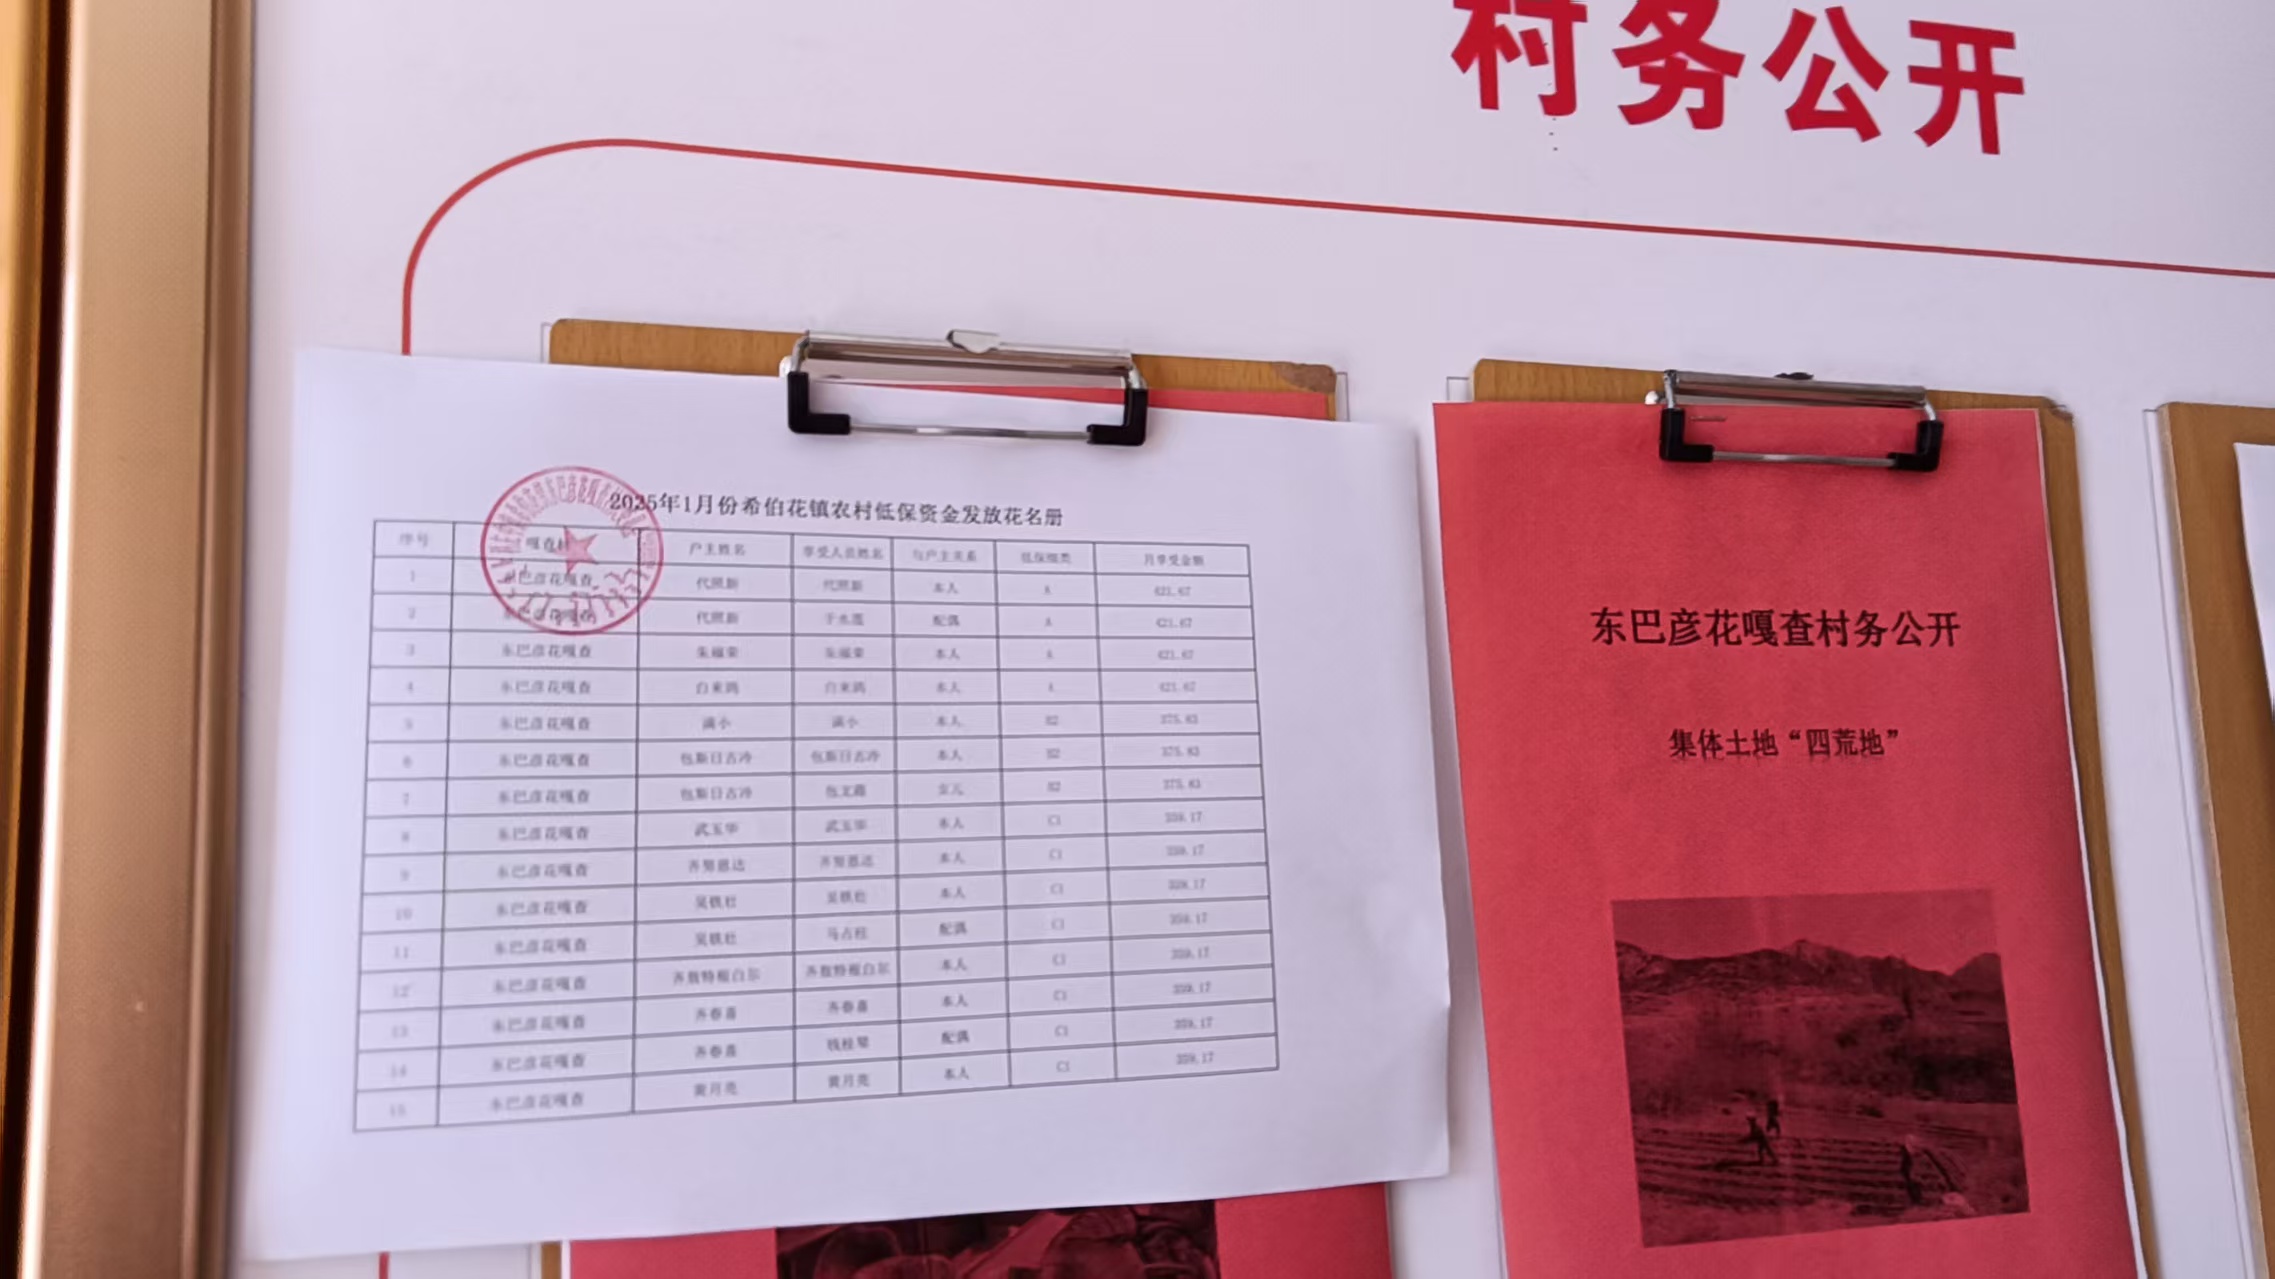 村务公开
2025年1月份希伯花镇农村低保资金发放花名册
序号 嘎查村 户主姓名 享受人员姓名 与户主关系 低保细类 月享受金额
1 东巴彦花嘎查 代照新 代照新 本人 A 421.67
2 东巴彦花嘎查 代照新 配偶 A 421.67
3 东巴彦花嘎查 朱福荣 朱福荣 本人 A 421.67
4 东巴彦花嘎查 白来鸽 白来鸽 本人 A 421.67
5 东巴彦花嘎查 满小 满小 本人 B2 375.83
6 东巴彦花嘎查 包斯日古冷 包斯日古冷 本人 B2 375.83
7 东巴彦花嘎查 包斯日古冷 B2 375.83
8 东巴彦花嘎查 武玉华 武玉华 本人 C1 359.17
9 东巴彦花嘎查 齐努恩达 齐努恩达 本人 C1 359.17
10 东巴彦花嘎查 吴铁柱 吴铁柱 本人 C1 359.17
11 东巴彦花嘎查 吴铁柱 马占桂 配偶 C1 359.17
12 东巴彦花嘎查 齐敖特根白尔 齐敖特根白尔 本人 C1 359.17
13 东巴彦花嘎查 齐春喜 齐春喜 本人 C1 359.17
14 东巴彦花嘎查 齐春喜 钱桂琴 配偶 C1 359.17
15 东巴彦花嘎查 黄月亮 黄月亮 本人 C1 359.17
东巴彦花嘎查村务公开
集体土地“四荒地”